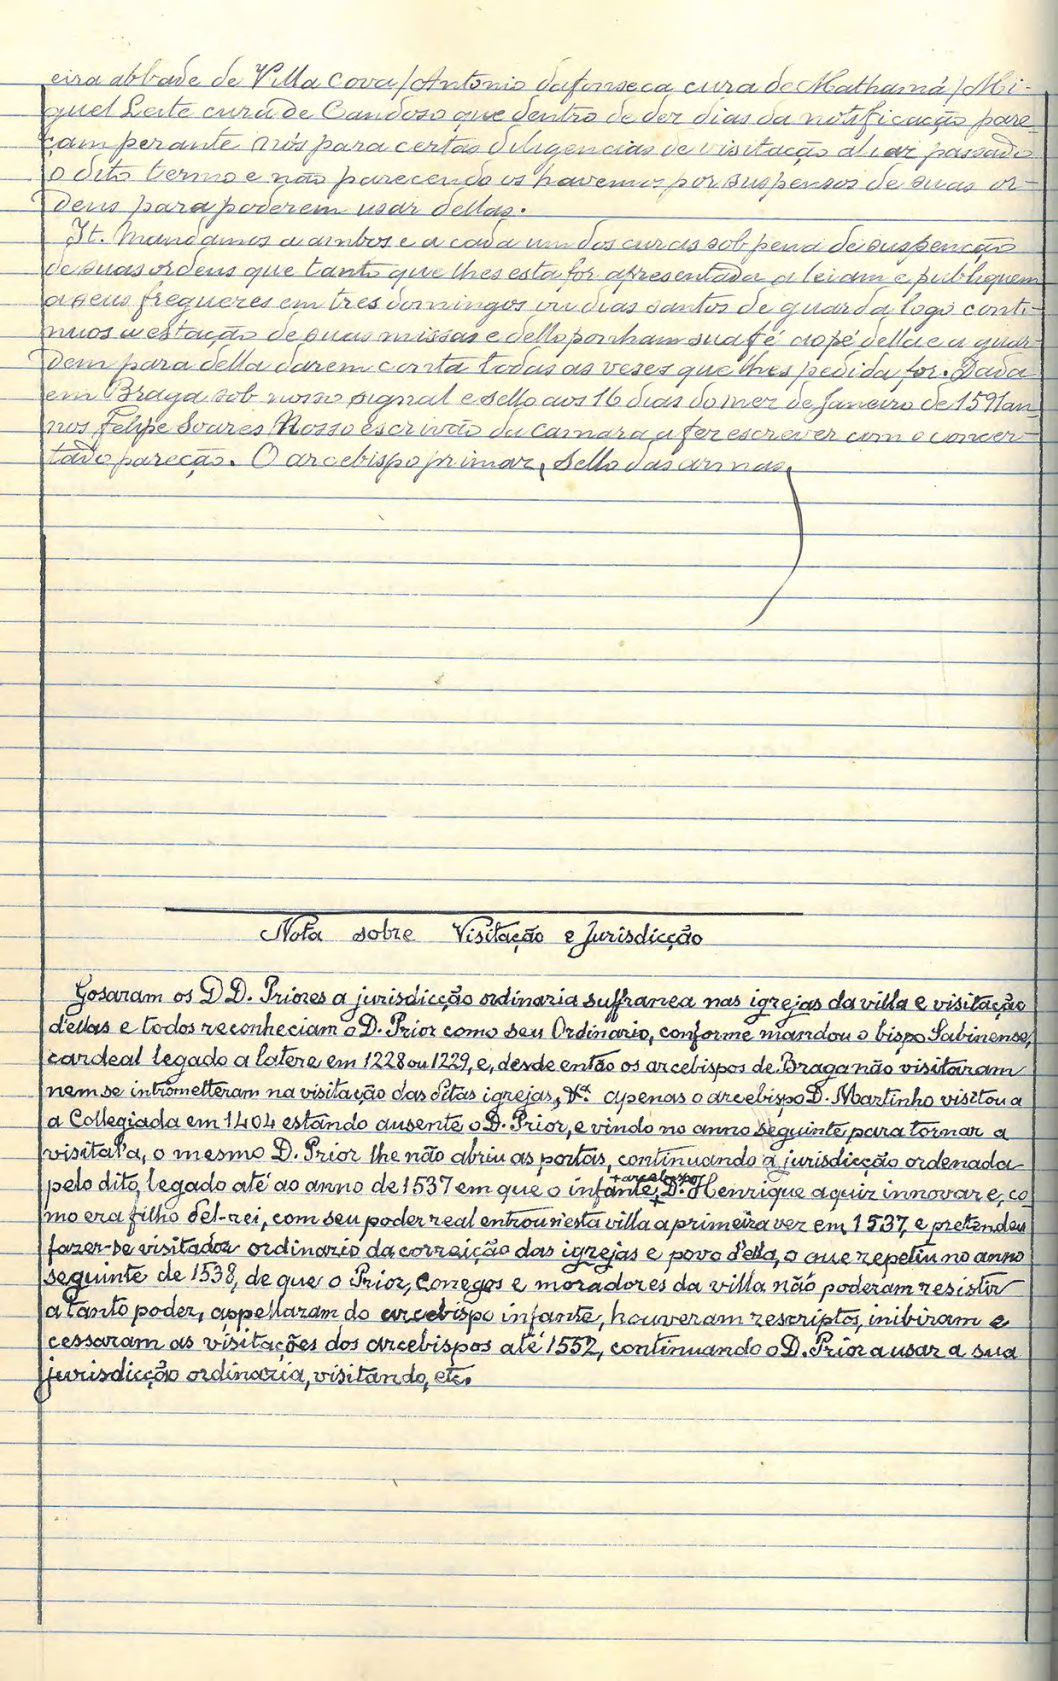 eira abbade de Villa Cova/Antonio dafonseca cura de Mathamá/Mi-
guel Leite cura de Candoso que dentro de dez dias da notificação pare-
çam perante nós para certas diligencias de visitação aliaz passado
o dito termo e não parecendo os havemos por suspensos de suas or-
dens para poderem usar dellas.
It. Mandamos a ambos e a cada um dos curas sob pena de suspenção
de suas ordens que tanto que lhes esta for apresentada a leiam e publiquem
a seus freguezes em tres domingos ou dias santos de guarda logo conti-
nuos a estação de suas missas e dello ponham sua fé ao pé della e a guar-
dem para della darem conta todas as veses que lhes pedida for. Dada
em Braga sob nosso signal e sello aos 16 dias do mez de Janeiro de 1591 an-
nos Felipe Soares Nosso escrivão da camara a fez escrever com o concer-
tado pareção. O arcebispo primaz, Sello das armas,
Nota sobre Visitação e Jurisdicção
Gosaram os DD. Priores a jurisdicção ordinaria suffranea nas igrejas da villa e visitação
d'ellas e todos reconheciam o D. Prior como seu Ordinario, conforme mandou o bispo Sabinense,
cardeal legado a latere em 1228 ou 1229, e, desde então os arcebispos de Braga não visitaram
nem se intrometteram na visitação das ditas igrejas, &ª apenas o arcebispo D. Martinho visitou a
a Collegiada em 1404 estando ausente o D. Prior, e vindo no anno seguinte para tornar a
visital'a, o mesmo D. Prior lhe não abriu as portas, continuando a jurisdicção ordenada
pelo dito, legado até ao anno de 1537 em que o infante, + arcebispo D. Henrique a quiz innovar e, co-
mo era filho d'el-rei, com seu poder real entrou n'esta villa a primeira vez em 1537, e pretendeu
fazer-se visitador ordinario da correição das igrejas e povo d'ella, o que repetiu no anno
seguinte de 1538, de que o Prior, Conegos e moradores da villa não poderam resistir
a tanto poder, appellaram do arcebispo infante, houveram rescriptos, inibiram e
cessaram as visitações dos arcebispos até 1552, continuando o D. Prior a usar a sua
jurisdicção ordinaria, visitando, etc.